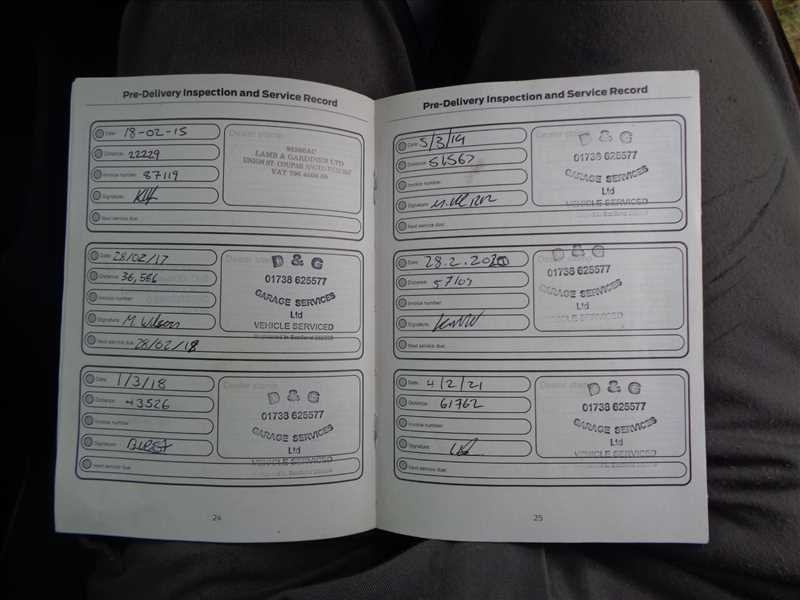 Pre-Delivery Inspection and Service Record
Date: 18-02-15
Distance: 22229
Invoice number: 87119
Signature:
Next service due:
Dealer stamp
LAMB & GARDINER LTD
UNION ST. COUPAR
VAT
Date: 28/02/17
Distance: 36,586
Invoice number:
Signature: M. Wilson
Next service due: 28/02/18
D & G
01738 625577
GARAGE SERVICES
Ltd
VEHICLE SERVICED
Date: 1/3/18
Distance: 43526
Invoice number:
Signature:
Next service due:
Dealer stamp
D & G
01738 625577
GARAGE SERVICES
Ltd
VEHICLE SERVICED
24
Pre-Delivery Inspection and Service Record
Date: 5/3/19
Distance: 51567
Invoice number:
Signature:
Next service due:
D & G
01738 625577
GARAGE SERVICES
Ltd
VEHICLE SERVICED
Date: 28.2.2020
Distance: 57103
Invoice number:
Signature:
Next service due:
D & G
01738 625577
GARAGE SERVICES
Ltd
VEHICLE SERVICED
Date: 4/2/21
Distance: 61762
Invoice number:
Signature:
Next service due:
D & G
01738 625577
GARAGE SERVICES
Ltd
VEHICLE SERVICED
25